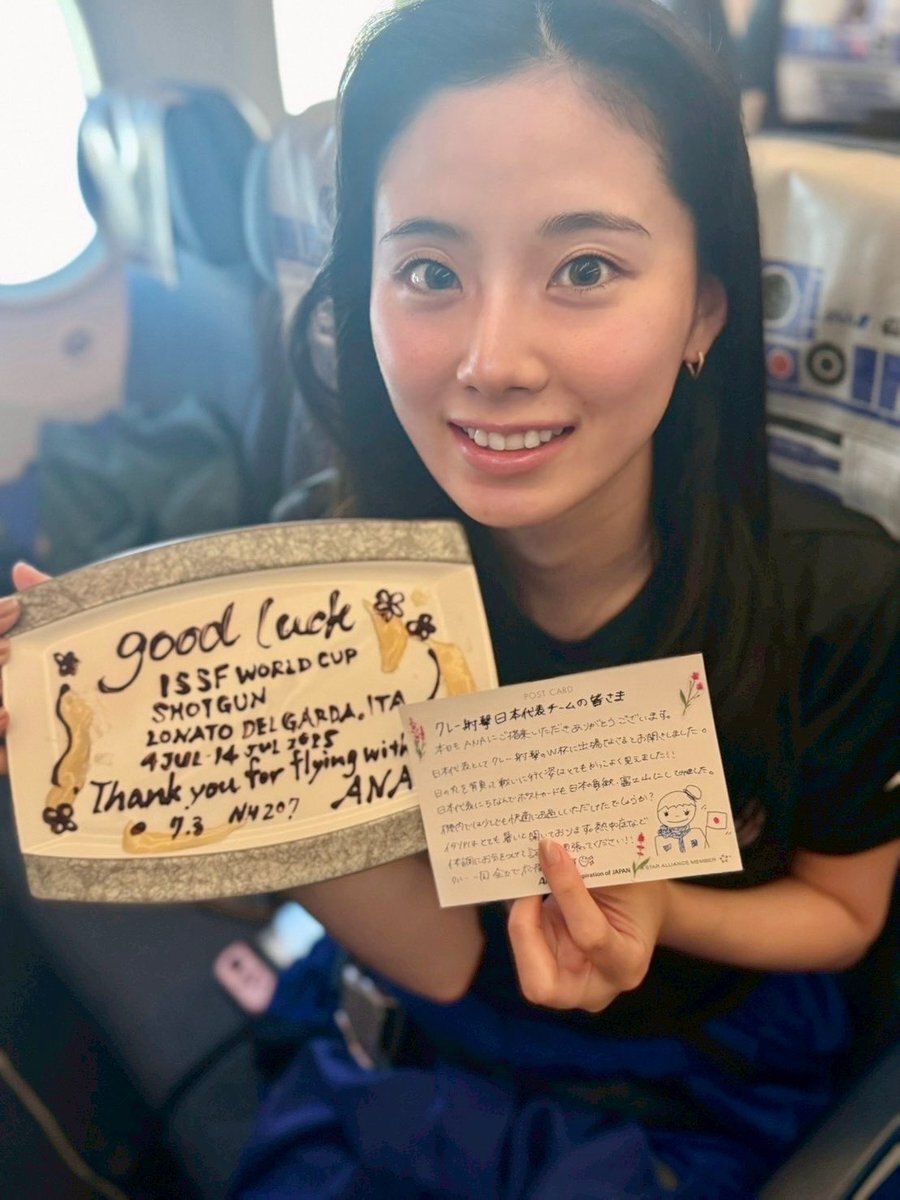 good luck
ISSF WORLD CUP
SHOTGUN
LONATO DEL GARDA, ITA
4 JUL - 14 JUL 2025
Thank you for flying with
ANA
7.3 NH207
POST CARD
クレー射撃日本代表チームの皆さま
本日もANAにご搭乗いただきありがとうございます。
日本代表としてクレー射撃のW杯に出場なさるとお聞きしました。
日の丸を背負って戦いに行く姿はとてもかっこよく見えました!!
日本代表にちなんでポストカードも日本の象徴、富士山にしてみました。
機内では少しでも快適にお過しいただけたでしょうか?
イタリアはとても暑いと聞いております。熱中症など
体調にお気をつけて
クルー一同
of JAPAN
A STAR ALLIANCE MEMBER